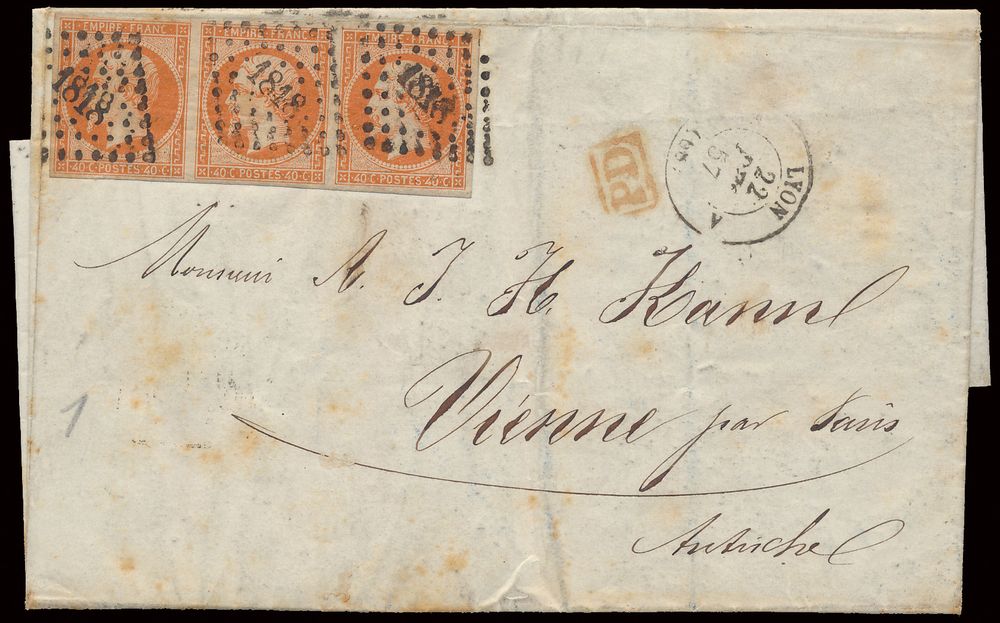 EMPIRE FRANC EMPIRE FRANC EMPIRE FRANC
1818 1818 1818
40·C·POSTES·40·C 40·C·POSTES·40·C 40·C·POSTES·40·C
PD
LYON
22
OCT.
57
Monsieur A. J. H. Kann
Vienne par Paris
Autriche
1